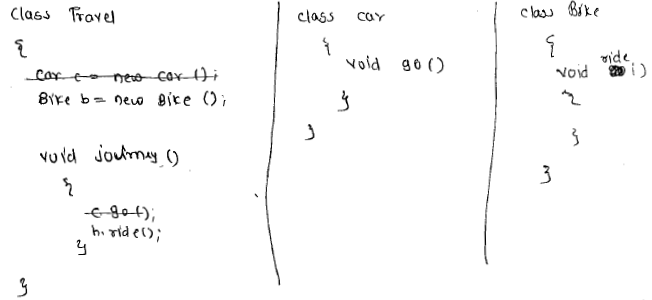 Class Travel
{
car c = new car ();
Bike b = new Bike ();
void journey ()
{
c go ();
b. ride ();
}
}
class car
{
void go ()
}
}
class Bike
{
void ride ()
{
}
}